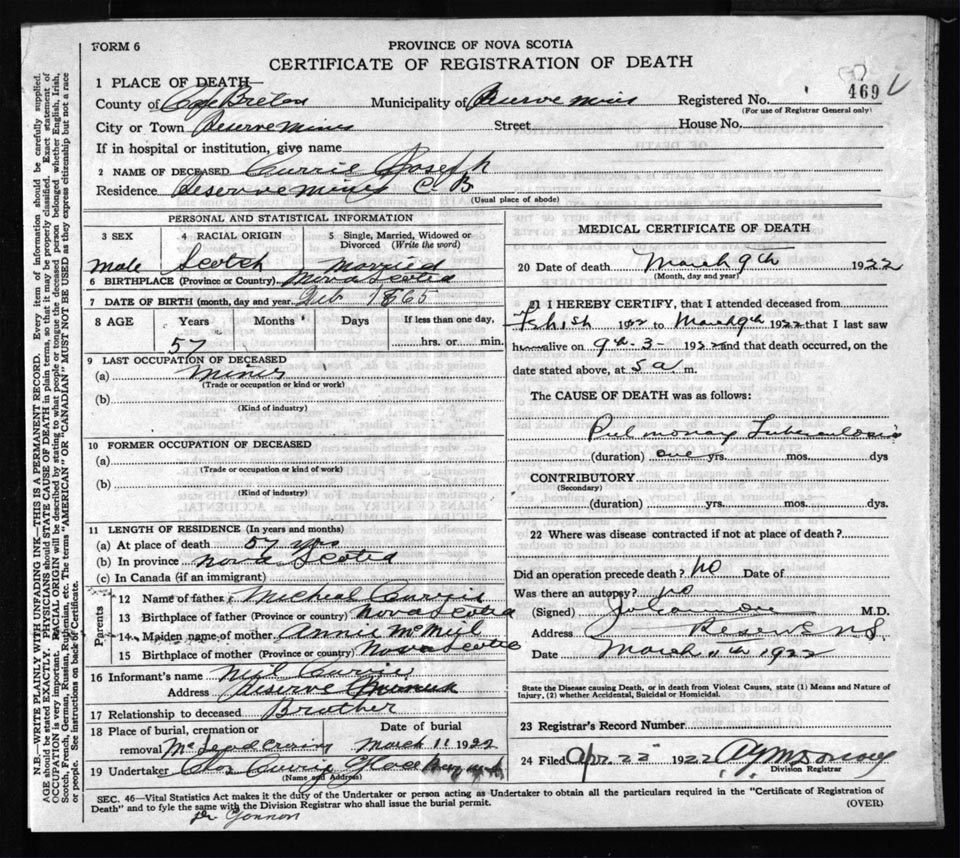 FORM 6
PROVINCE OF NOVA SCOTIA
CERTIFICATE OF REGISTRATION OF DEATH
469
1 PLACE OF DEATH
County of Cape Breton Municipality of Reserve Mines Registered No.
(For use of Registrar General only)
City or Town Reserve Mines Street House No.
If in hospital or institution, give name
2 NAME OF DECEASED Currie Joseph
Residence Reserve Mines C B
(Usual place of abode)
PERSONAL AND STATISTICAL INFORMATION
3 SEX 4 RACIAL ORIGIN 5 Single, Married, Widowed or Divorced (Write the word)
male Scotch Married
6 BIRTHPLACE (Province or Country) Nova Scotia
7 DATE OF BIRTH (month, day and year) 1865
8 AGE Years Months Days If less than one day,
57 hrs. or min.
9 LAST OCCUPATION OF DECEASED
(a)
(Trade or occupation or kind of work)
(b)
(Kind of industry)
10 FORMER OCCUPATION OF DECEASED
(a)
(Trade or occupation or kind of work)
(b)
(Kind of industry)
11 LENGTH OF RESIDENCE (In years and months)
(a) At place of death 57 yrs
(b) In province Nova Scotia
(c) In Canada (if an immigrant)
Parents
12 Name of father Micheal Currie
13 Birthplace of father (Province or country) Nova Scotia
14 Maiden name of mother Annie McNeil
15 Birthplace of mother (Province or country) Nova Scotia
16 Informant's name Neil Currie
Address Reserve
17 Relationship to deceased Brother
18 Place of burial, cremation or removal Date of burial
March 11 1922
19 Undertaker Currie
(Name and Address)
MEDICAL CERTIFICATE OF DEATH
20 Date of death March 9th 1922
(Month, day and year)
21 I HEREBY CERTIFY, that I attended deceased from
192 to March 9th 1922 that I last saw
h alive on 9th - 3 - 1922 and that death occurred, on the
date stated above, at 5 a m.
The CAUSE OF DEATH was as follows:
Pulmonary Tuberculosis
(duration) one yrs. mos. dys
CONTRIBUTORY
(Secondary)
(duration) yrs. mos. dys.
22 Where was disease contracted if not at place of death?
Did an operation precede death? No Date of
Was there an autopsy? no
(Signed) M.D.
Address Reserve N.S.
Date March 11th 1922
State the Disease causing Death, or in death from Violent Causes, state (1) Means and Nature of
Injury, (2) whether Accidental, Suicidal or Homicidal.
23 Registrar's Record Number
24 Filed Apr. 22 1922
Division Registrar
SEC. 46—Vital Statistics Act makes it the duty of the Undertaker or person acting as Undertaker to obtain all the particulars required in the "Certificate of Registration of
Death" and to fyle the same with the Division Registrar who shall issue the burial permit.
(OVER)
N.B.—WRITE PLAINLY WITH UNFADING INK—THIS IS A PERMANENT RECORD. Every item of information should be carefully supplied.
AGE should be stated EXACTLY. PHYSICIANS should STATE CAUSE OF DEATH in plain terms, so that it may be properly classified. Exact statement of
OCCUPATION is very important. RACIAL ORIGIN will be described by stating to what people or tongue the deceased person belonged whether English, Irish,
Scotch, French, German, Russian, Ruthenian, etc. The terms "AMERICAN" OR "CANADIAN" MUST NOT BE USED as they express citizenship but not a race
or people. See instructions on back of Certificate.